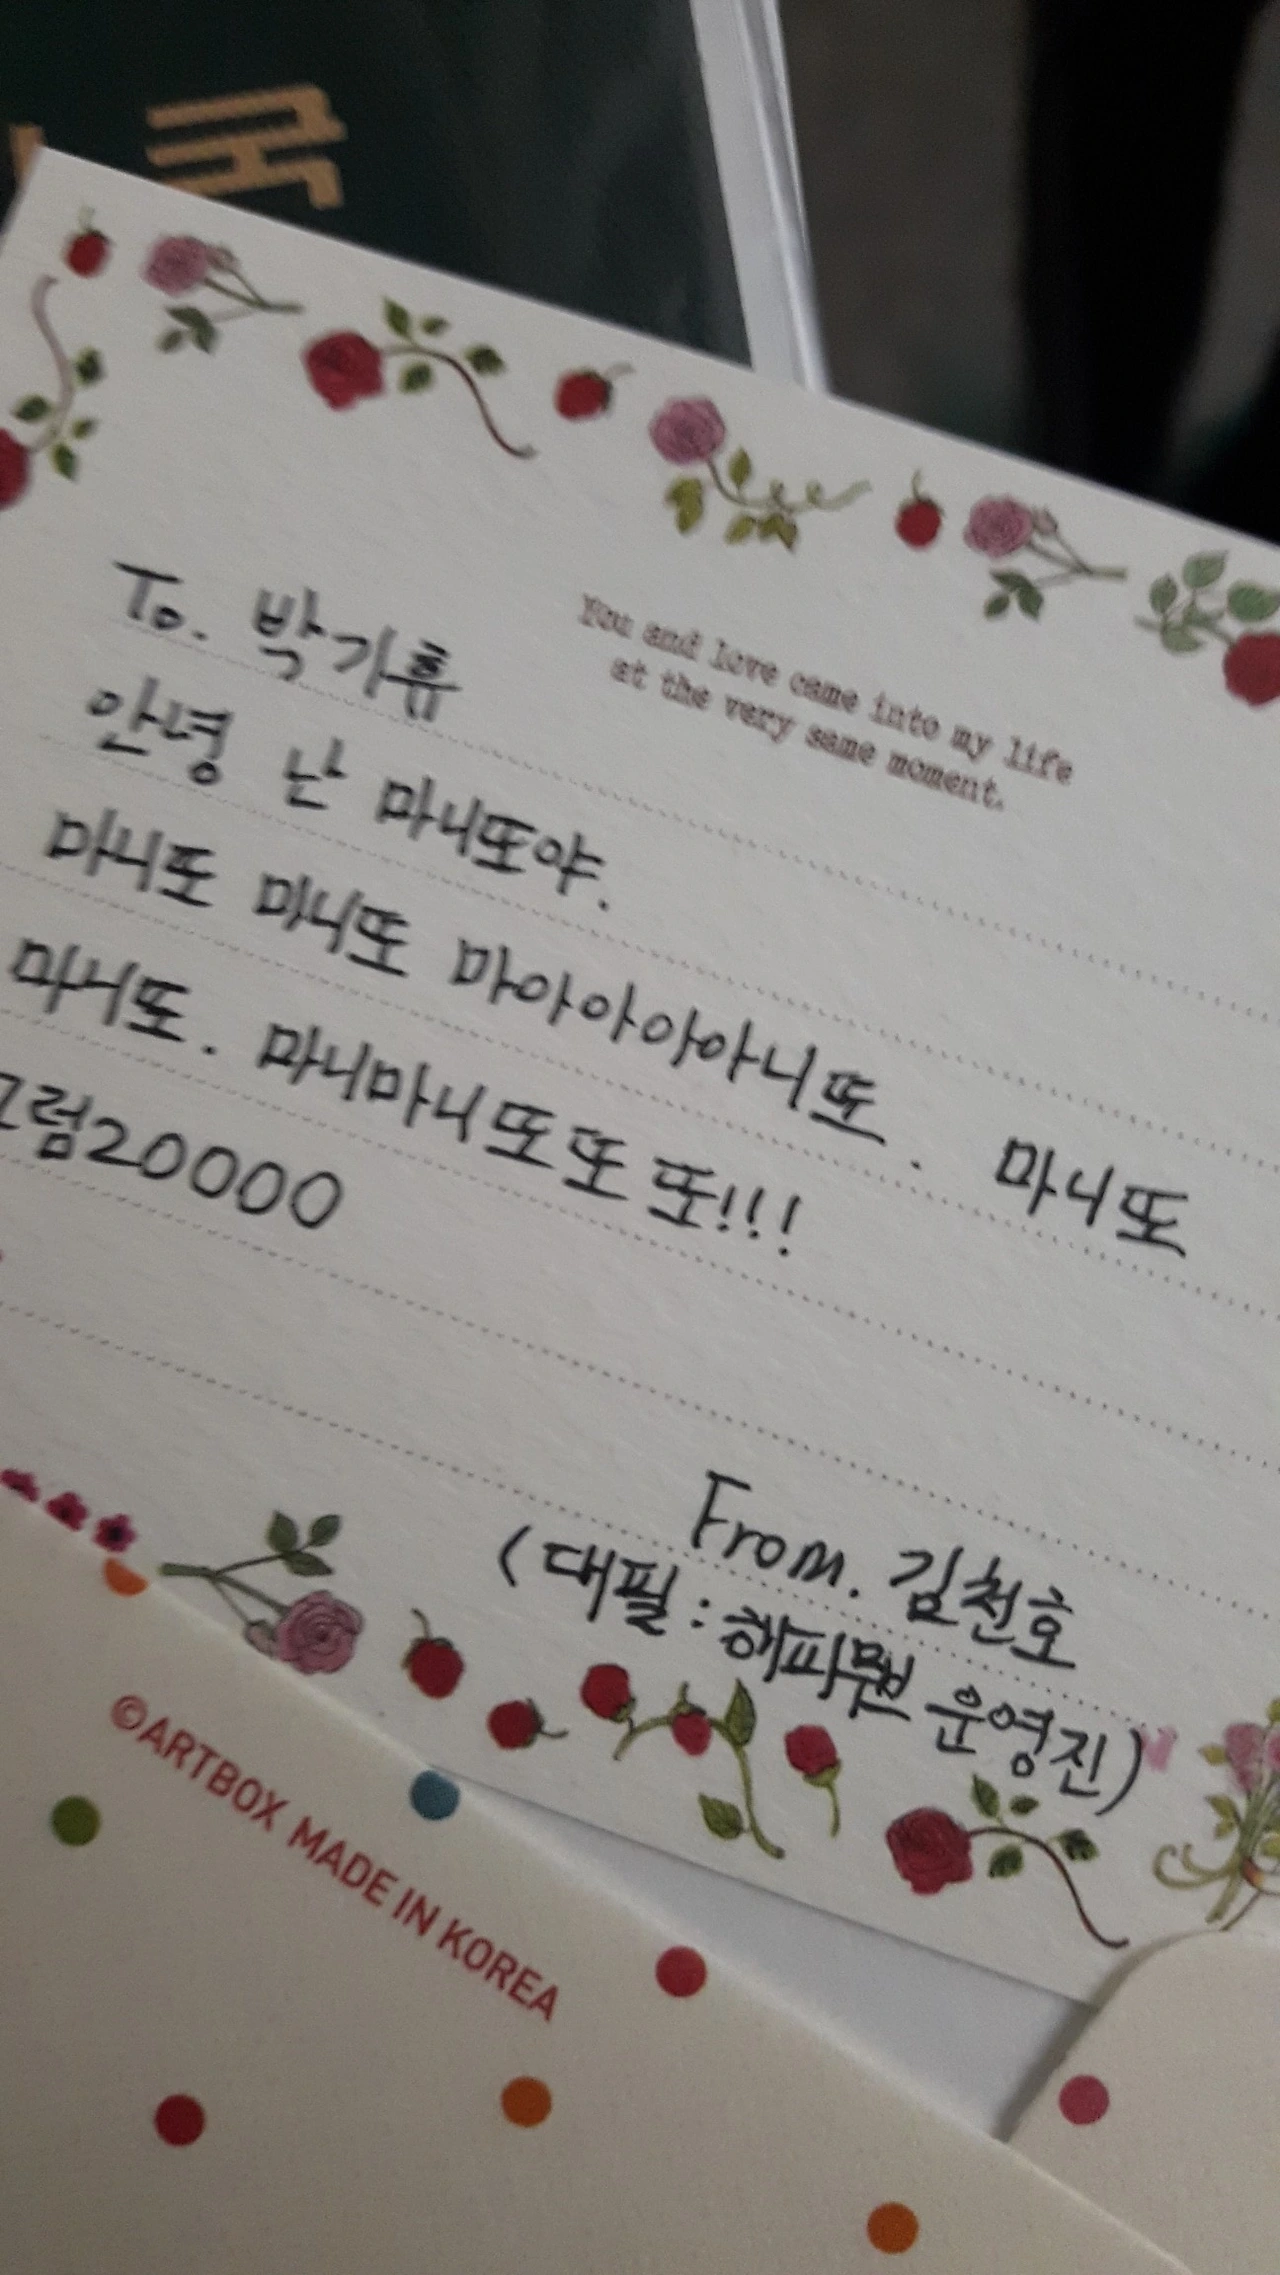 국
You and love came into my life
at the very same moment.
To. 박기휴
안녕 난 마니또야.
마니또 마니또 마아아아아니또. 마니또
마니또. 마니마니또또또!!!
그럼20000
From. 김천호
(대필: 해피뭰 운영진)
©ARTBOX MADE IN KOREA